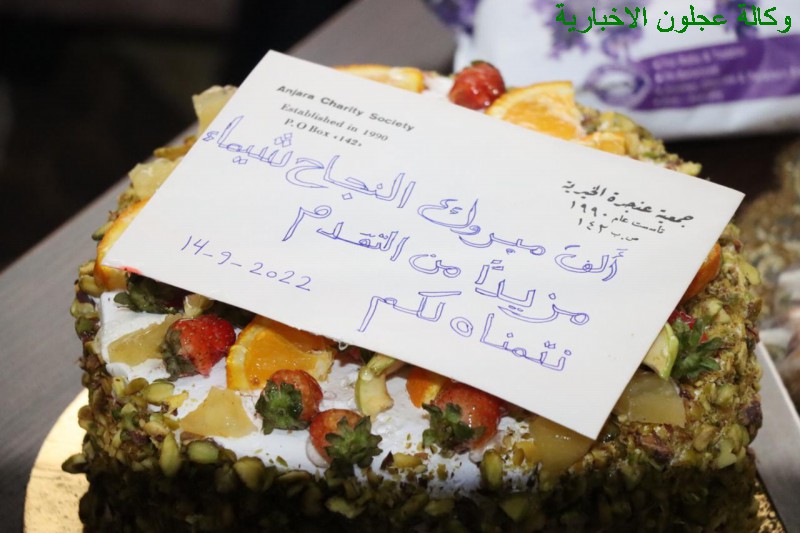 وكالة عجلون الاخبارية
Anjara Charity Society
Established in 1990
P.O Box «142»
جمعية عنجرة الخيرية
تأسست عام ١٩٩٠
ص.ب ١٤٢
ألف مبروك النجاح شيماء
مزيدًا من التقدم
نتمناه لكم
14-9-2022